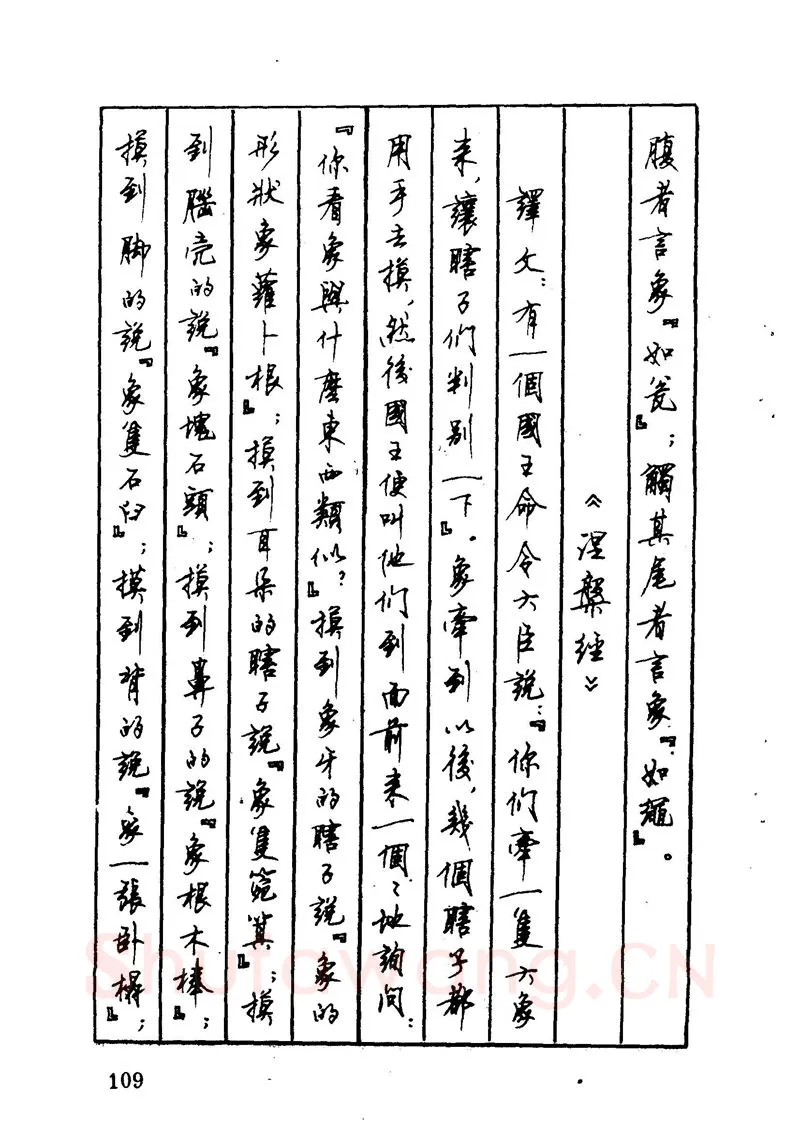 腹者言象『如瓮』；觸其尾者言象『如繩』。
《涅槃經》
譯文：有一個國王命令大臣說：『你們牽一隻大象
来，讓瞎子們判别一下』。象牽到以後，幾個瞎子都
用手去摸，然後國王便叫他們到面前来一個〻地詢問：
『你看象與什麼東西類似？』摸到象牙的瞎子說『象的
形狀象蘿卜根』；摸到耳朵的瞎子說『象隻筢箕』；摸
到腦壳的說『象塊石頭』；摸到鼻子的說『象根木棒』；
摸到脚的說『象隻石臼』；摸到背的說『象一張卧榻』；
109
Shufawang.CN